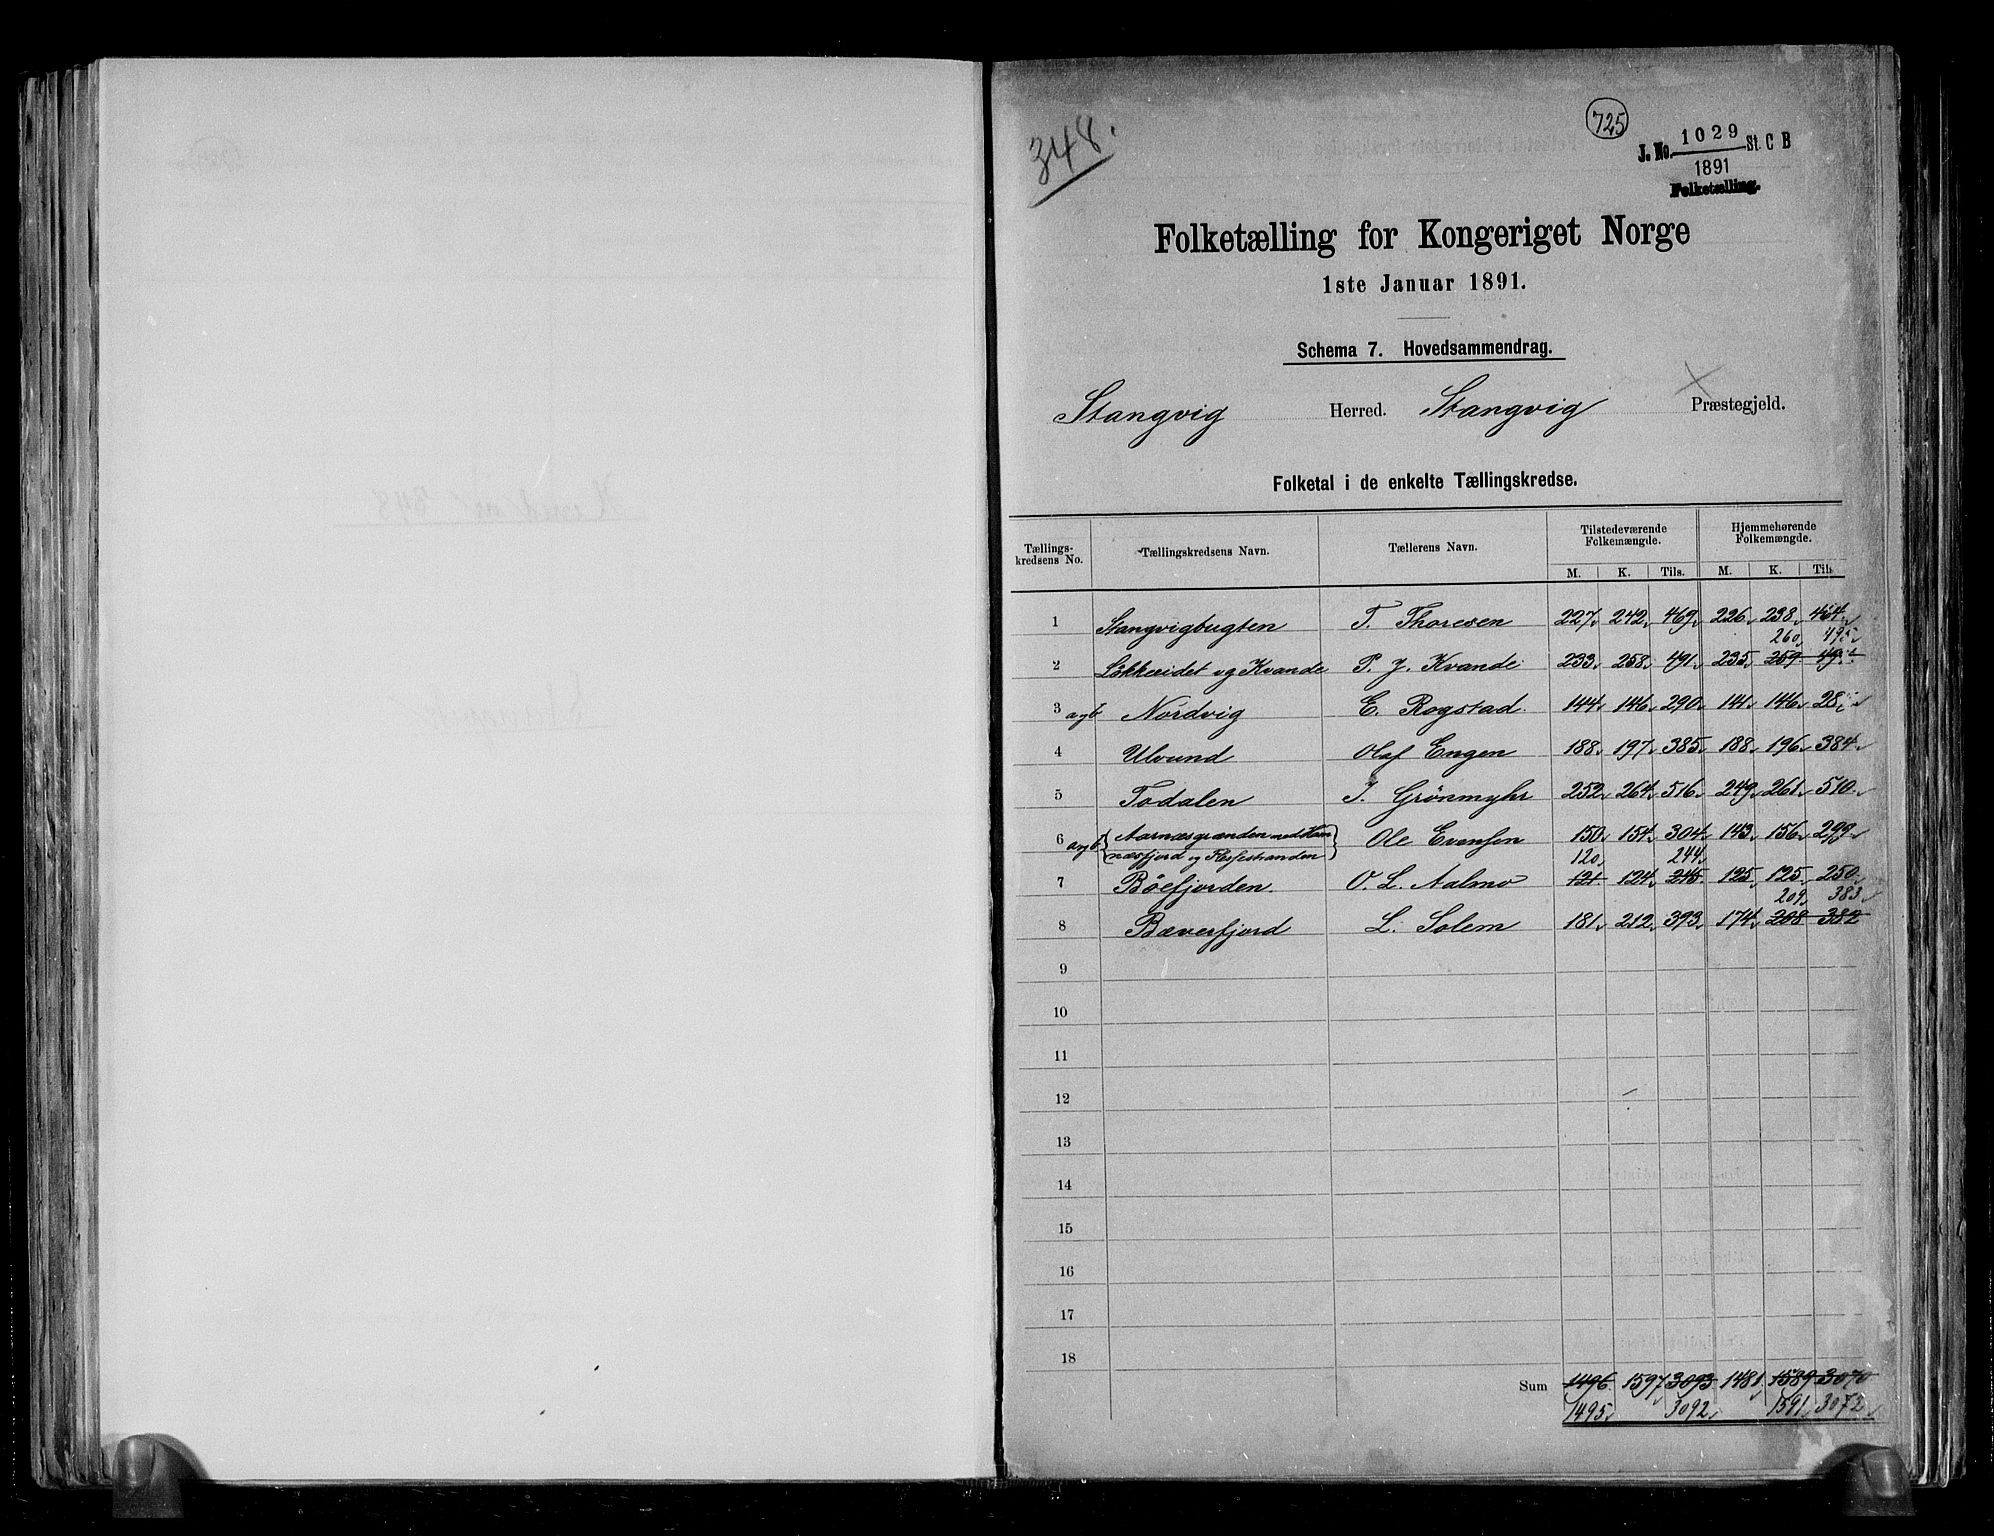 348.
725
J. No. 1029 St. C B
1891
Folketælling.
Folketælling for Kongeriget Norge
1ste Januar 1891.
Schema 7. Hovedsammendrag.
Stangvig Herred. Stangvig Præstegjeld.
Folketal i de enkelte Tællingskredse.
Tællings-kredsens No. Tællingskredsens Navn. Tællerens Navn. Tilstedeværende Folkemængde. Hjemmehørende Folkemængde.
M. K. Tils. M. K. Tils.
1 Stangvigbugten T. Thoresen 227 242 469 226 238 464
260 495
2 Løkkeidet og Kvande P. J. Kvande 233 258 491 235 259
3 a og b Nordvig E. Rogstad 144 146 290 141 146
4 Ulvund Olaf Engen 188 197 385 188 196 384
5 Todalen I. Grønmyhr 252 264 516 249 261 510
6 a og b Aarnæsgrænden med Ham Ole Evensen 150 154 304 143 156 299
næsfjord og 120 244
7 Bøefjorden. O. L. Aalmo 121 124 245 125 125 250
209 383
8 Bæverfjord L. Solem 181 212 393 174 208 382
9
10
11
12
13
14
15
16
17
18
Sum 1496 1597 3093 1481 1589 3070
1495 3092 1591 3072